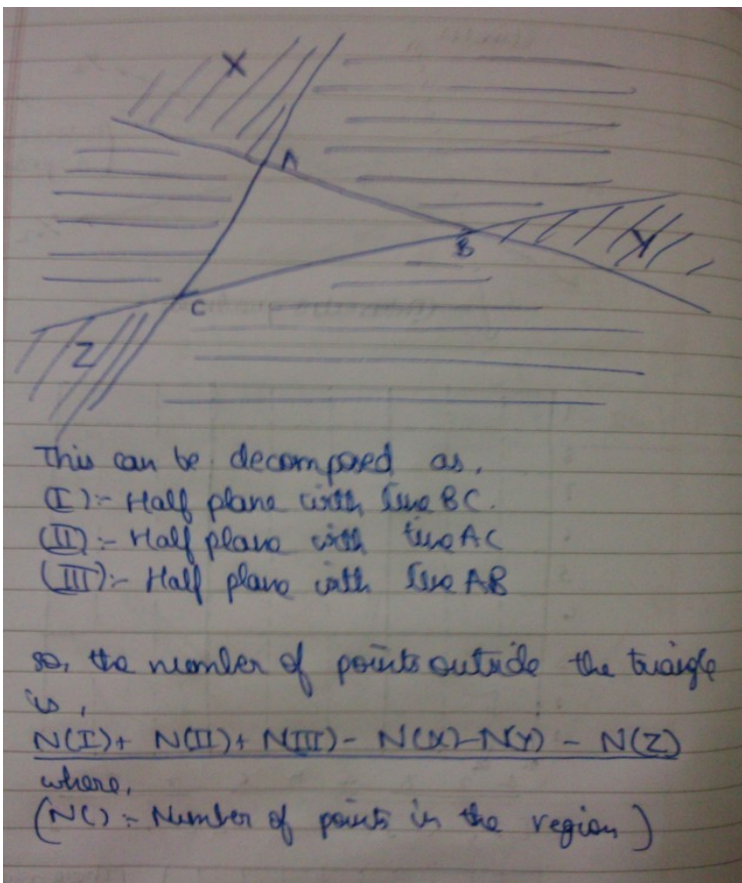 X
A
B
Y
C
Z
This can be decomposed as,
(I):- Half plane with line BC.
(II):- Half plane with line AC
(III):- Half plane with line AB
so, the number of points outside the triangle
is,
N(I)+ N(II)+ N(III)- N(X)-N(Y) - N(Z)
where,
(N() :- Number of points in the region)